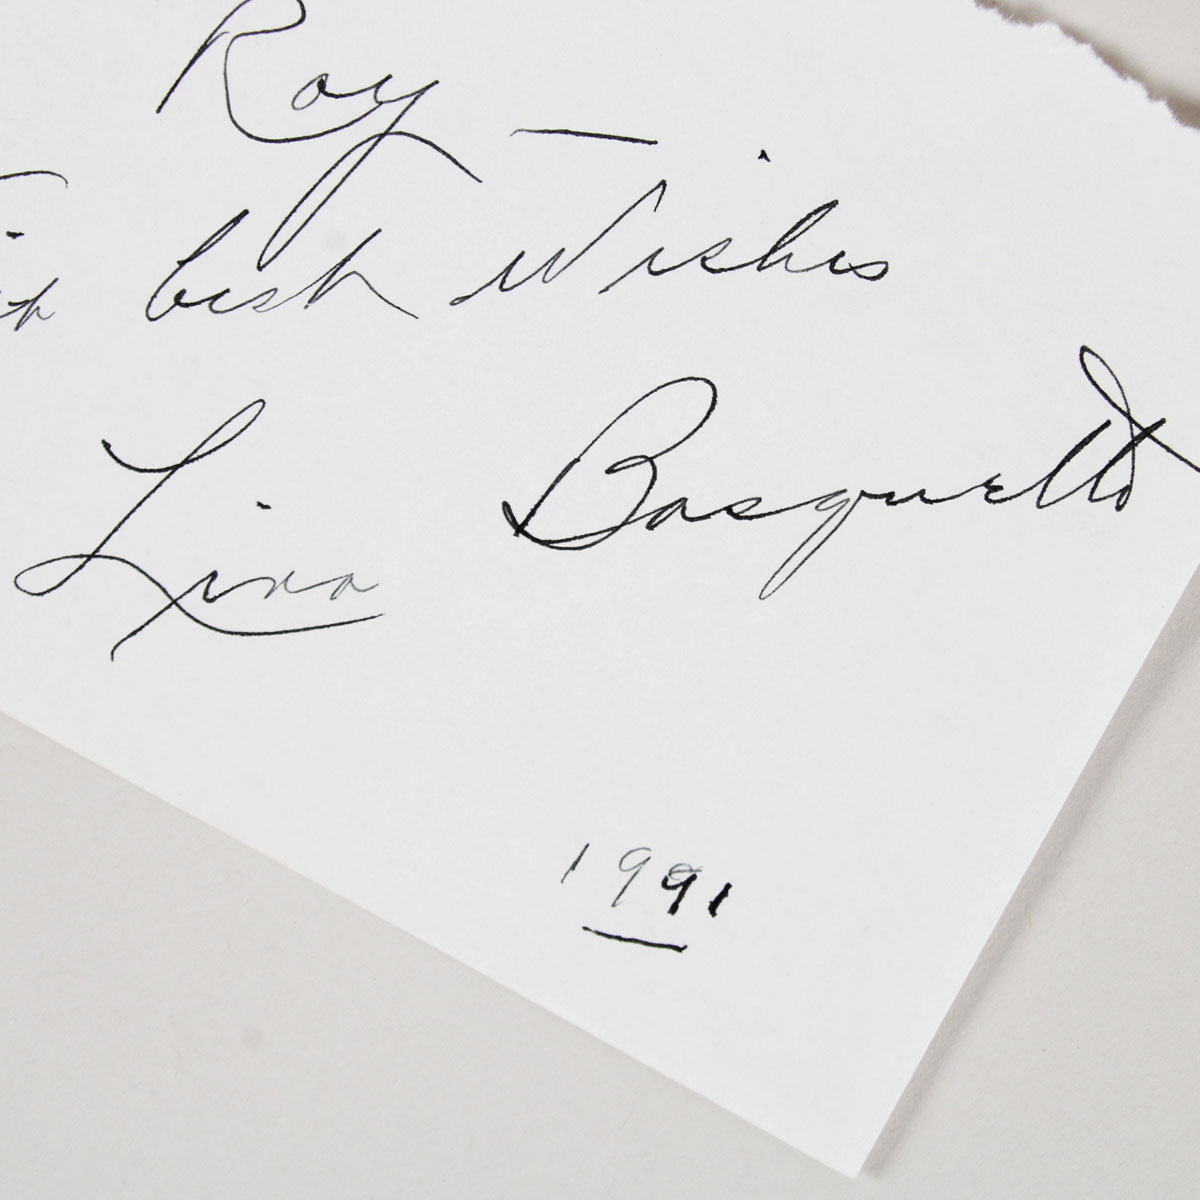 Roy —
With best Wishes
Lina Basquette
1991